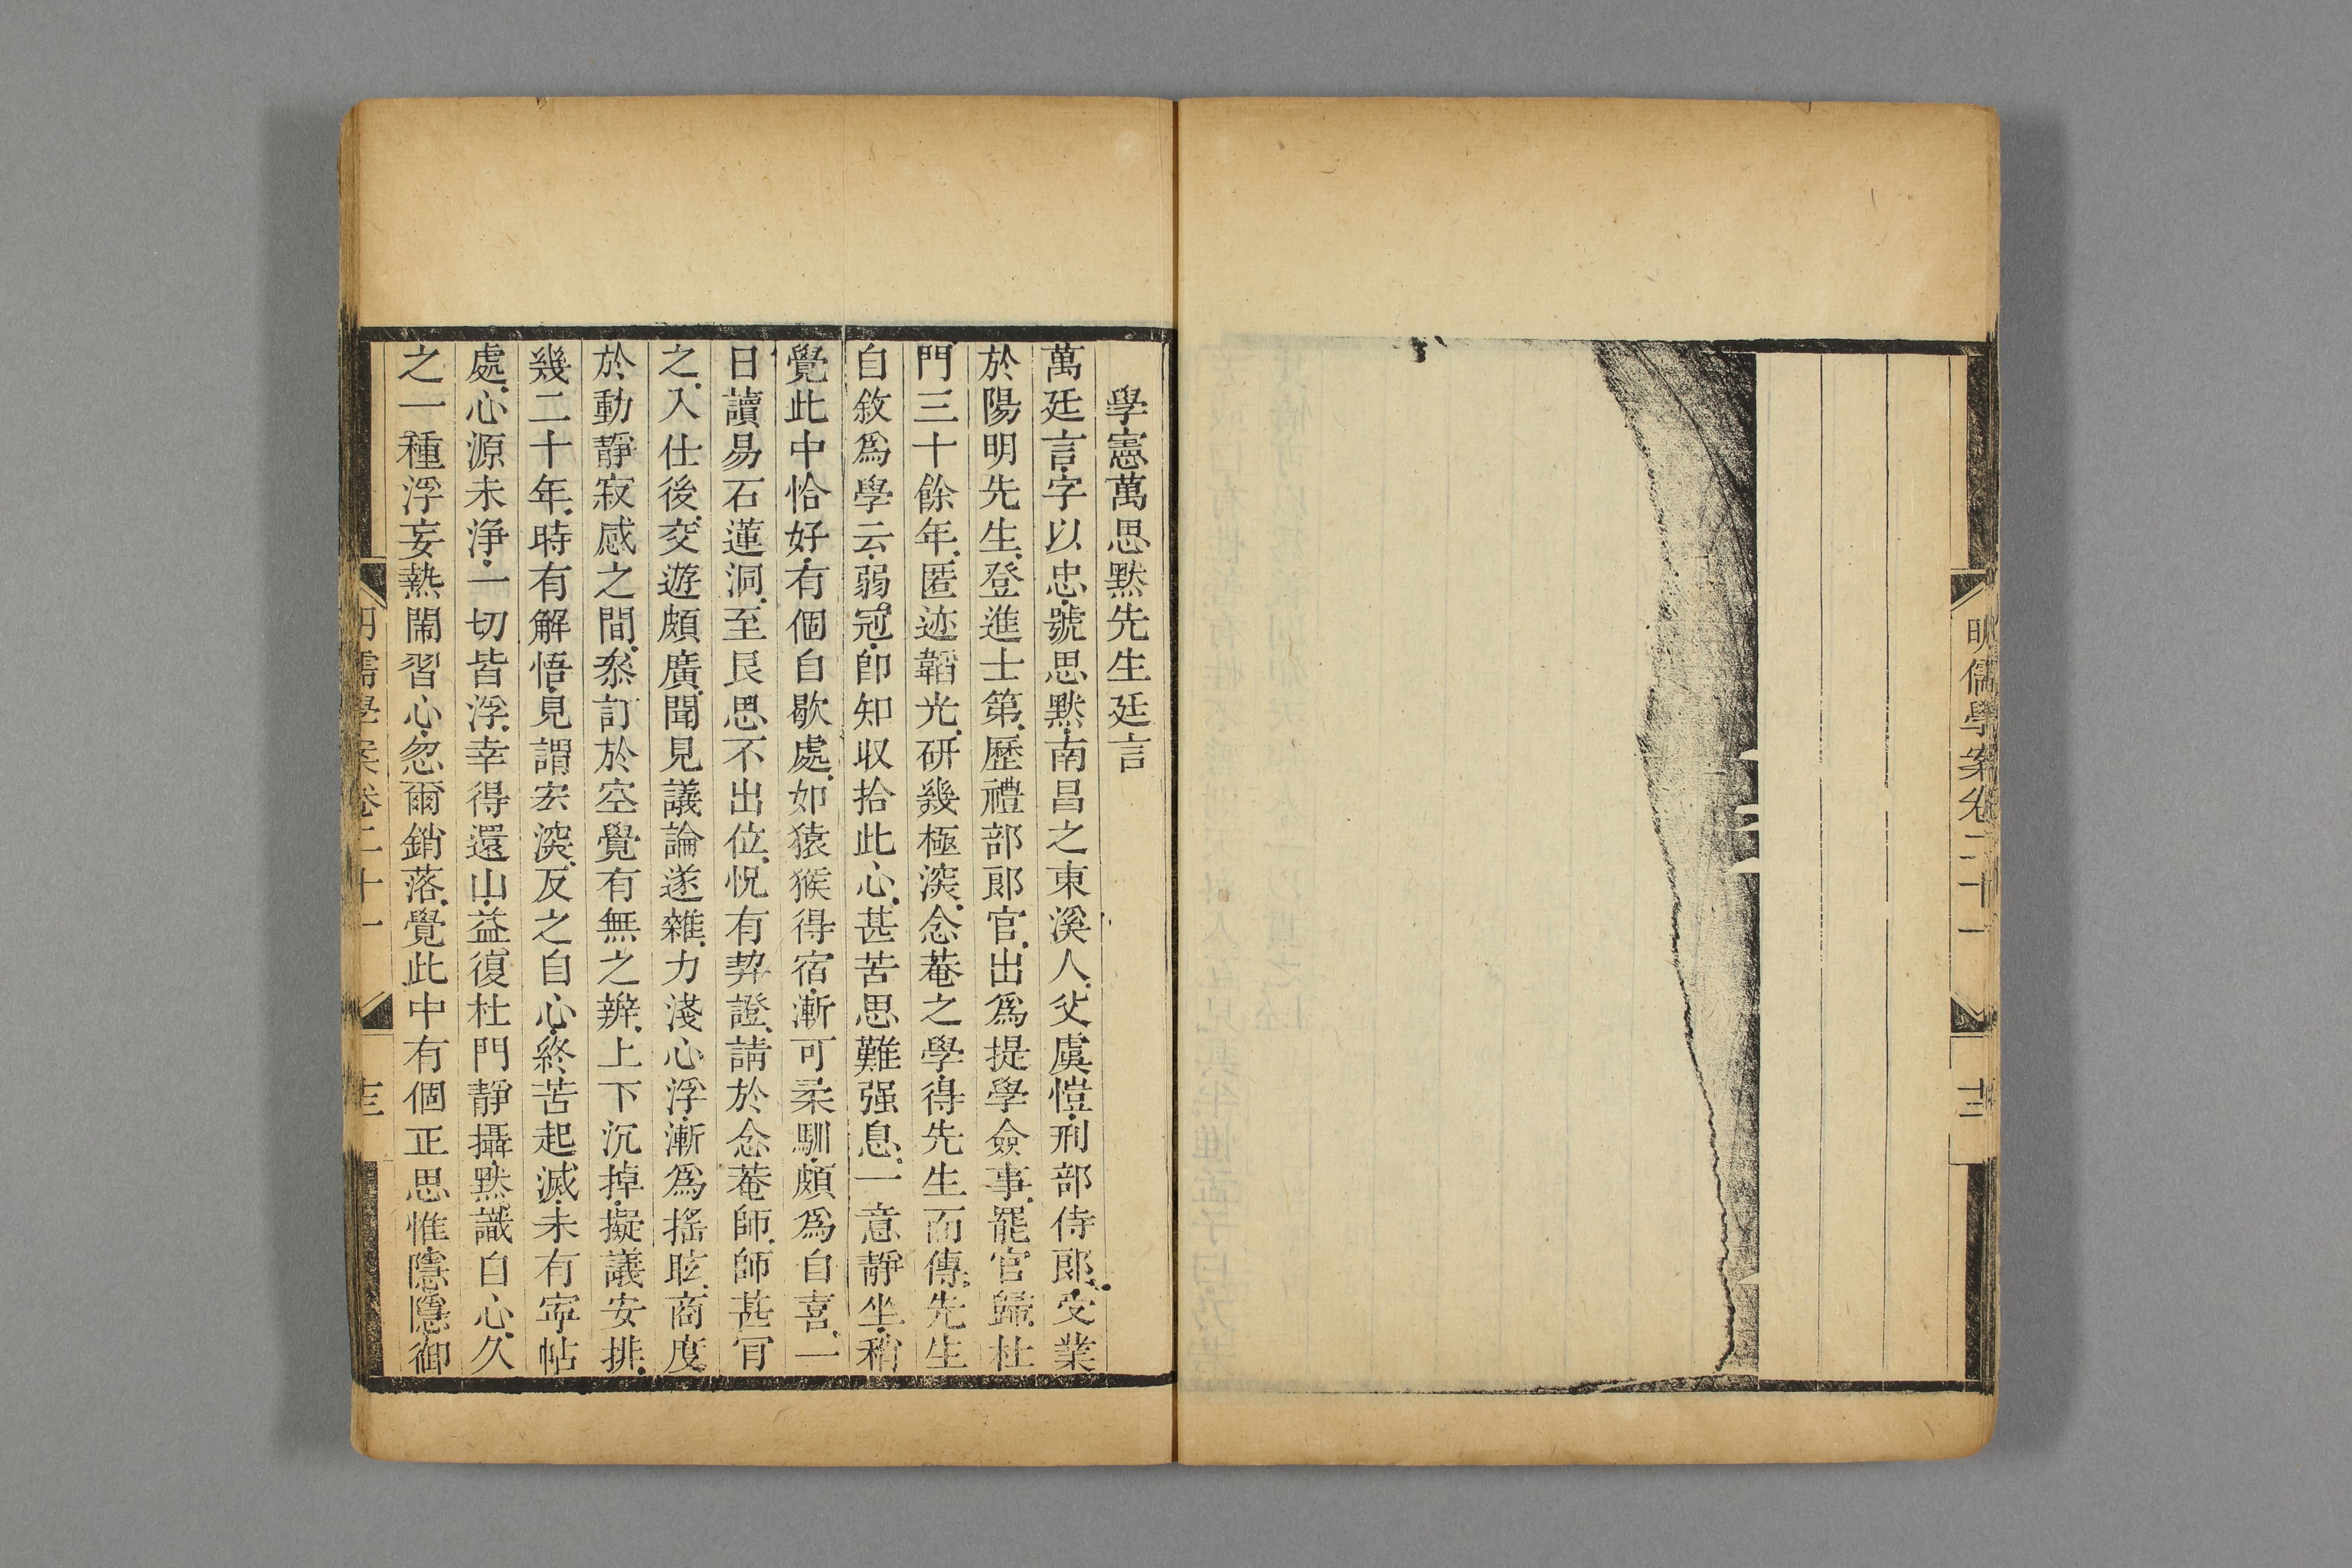 明儒學案卷二十一
學憲萬思默先生廷言
萬廷言字以忠號思默南昌之東溪人父虞愷刑部侍郎受業
於陽明先生登進士第歷禮部郎官出爲提學僉事罷官歸杜
門三十餘年匿迹韜光研幾極深念菴之學得先生而傳先生
自敘爲學云弱冠卽知收拾此心甚苦思難强息一意靜坐稍
覺此中恰好有個自歇處如猿猴得宿漸可柔馴頗爲自喜一
日讀易石蓮洞至艮思不出位怳有契證請於念菴師師甚肎
之入仕後交遊頗廣聞見議論遂雜力淺心浮漸爲搖眩商度
於動靜寂感之間叅訂於空覺有無之辨上下沉掉擬議安排
幾二十年時有解悟見謂宏深反之自心終苦起滅未有寧帖
處心源未淨一切皆浮幸得還山益復杜門靜攝默識自心久
之一種浮妄熱鬧習心忽爾銷落覺此中有個正思惟隱隱御
明儒學案卷二十一